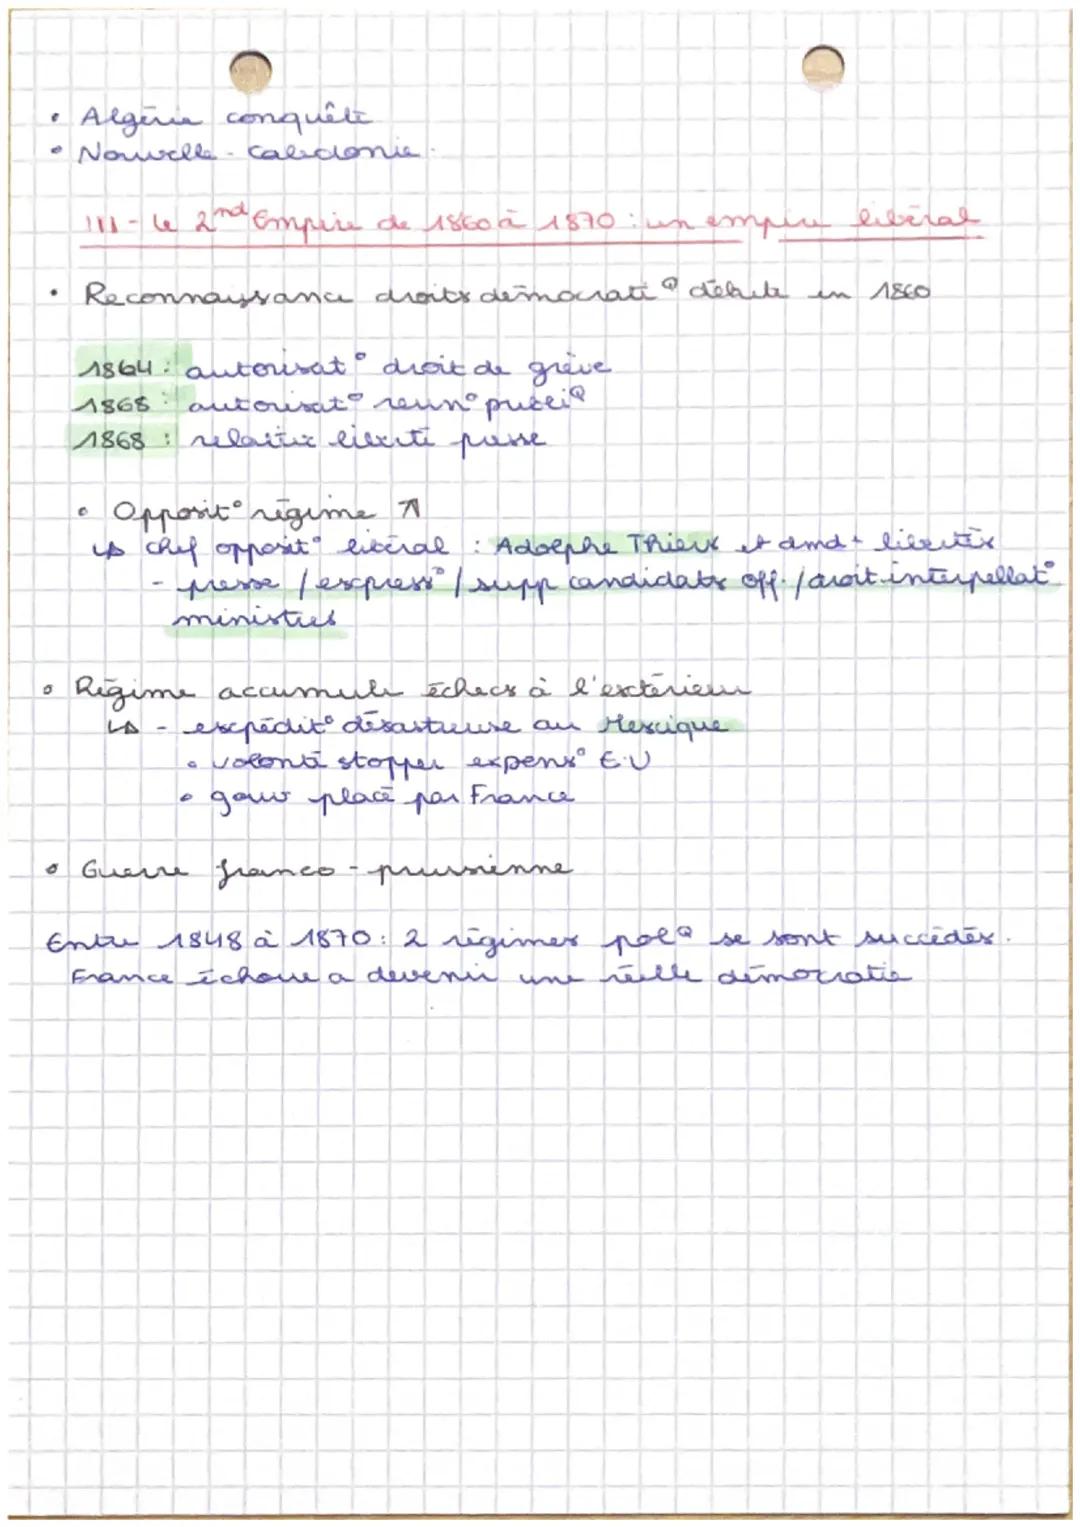 • Algérie conquête
• Nouvelle-Calédonie.
III - Le 2nd Empire de 1860 à 1870 : un empire libéral
• Reconnaissance droits démocratiQ débute en 1860
1864 : autorisat° droit de grève
1868 : autorisat° reun° publiQ
1868 : relative liberté presse
• Opposit° régime ↗
↳ chef opposit° libéral : Adolphe Thiers et dmd + libertés
- presse / express° / supp candidats off. / droit interpellat°
ministres
• Régime accumule échecs à l'extérieur
↳ - expédit° désastreuse au Mexique
• volonté stopper expens° E.U
• gouv placé par France
• Guerre franco-prussienne
Entre 1848 à 1870 : 2 régimes polQ se sont succédés.
France échoue a devenir une réelle démocratie